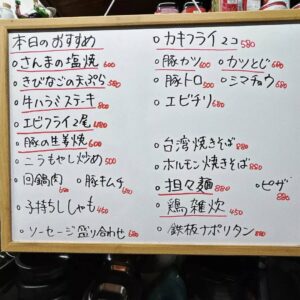 本日のおすすめ
○さんまの塩焼 600
○きびなごの天ぷら 580
○牛ハラミステーキ 800
○エビフライ2尾 480
○豚の生姜焼 600
○ニラもやし炒め 500
○回鍋肉 ○豚キムチ
○子持ちししゃも 450
○ソーセージ盛り合わせ 680
○カキフライ2コ 580
○豚カツ 600 ○カツとじ 680
○豚トロ 500 ○シマチョウ
○エビチリ
○台湾焼きそば 880
○ホルモン焼きそば 850
○担々麺 880 ○ピザ
○鶏雑炊 450
○鉄板ナポリタン